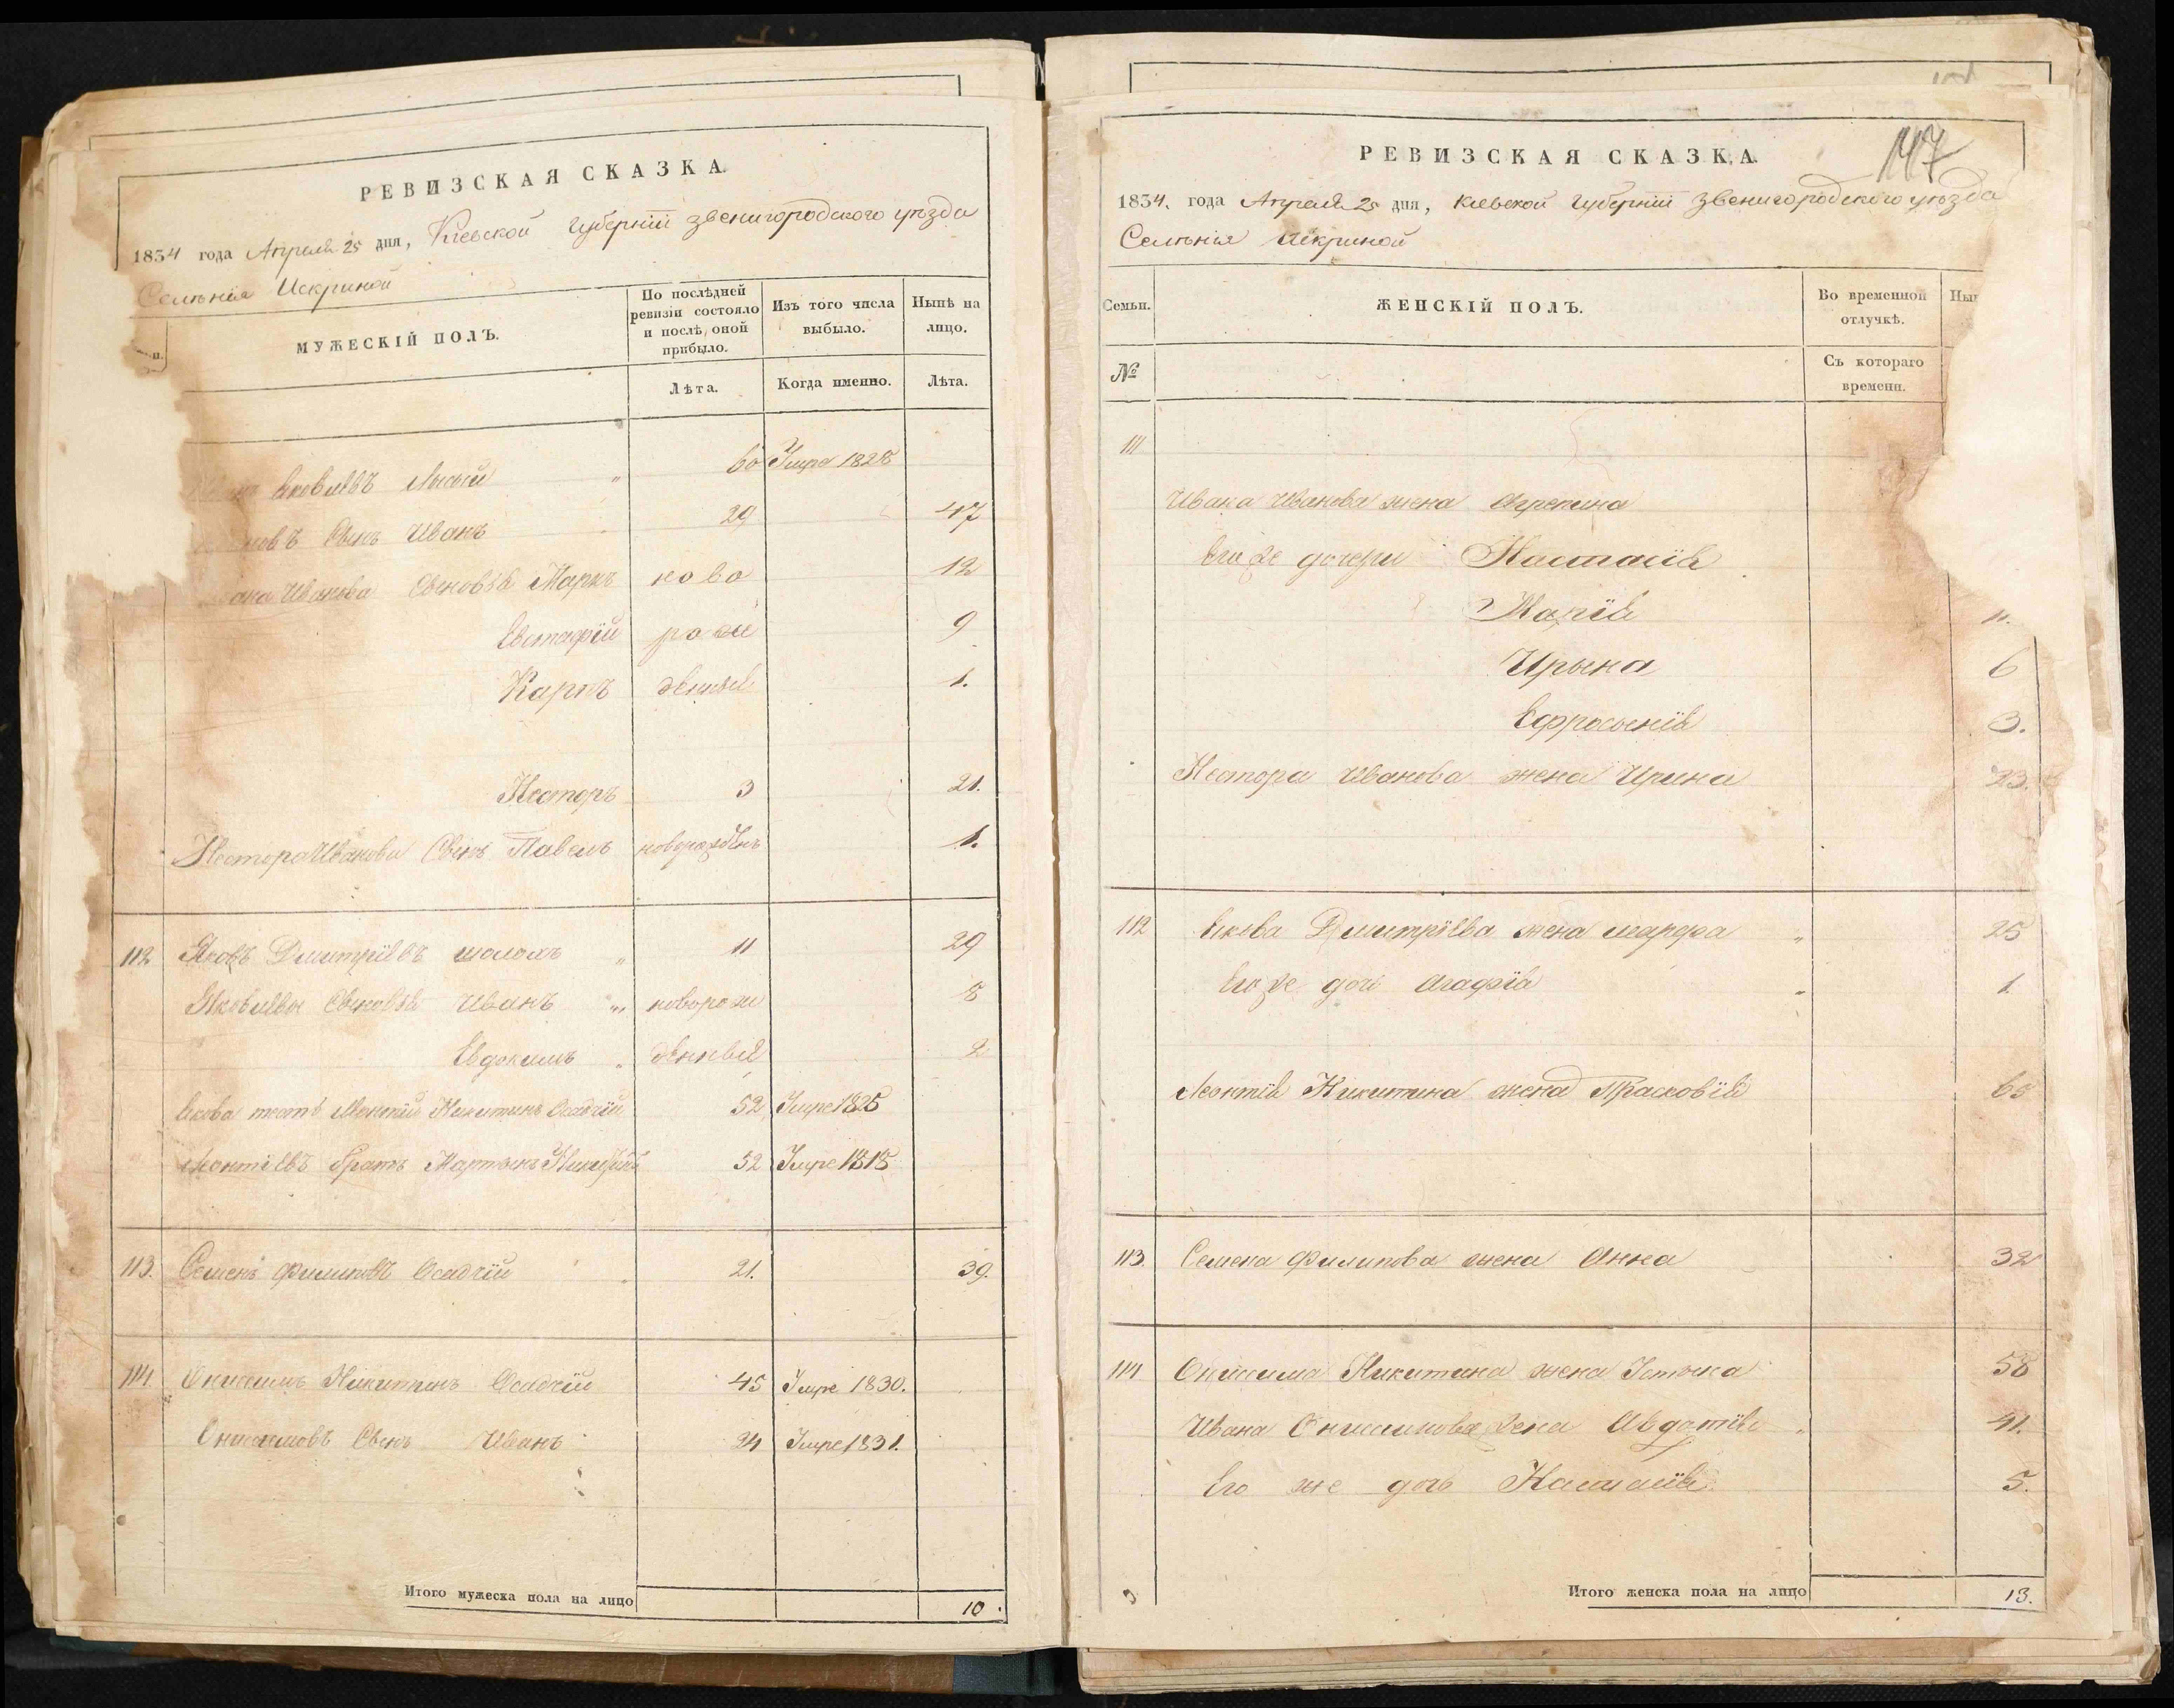 РЕВИЗСКАЯ СКАЗКА.
1834 года Апреля 25 дня, Киевской Губернїи Звенигородского уѣзда
Селѣнія Искриной
МУЖЕСКІЙ ПОЛЪ.
По послѣдней ревизіи состояло и послѣ оной прибыло.
Изъ того числа выбыло.
Нынѣ на лицо.
Лѣта.
Когда именно.
Лѣта.
Яковлевъ Лысый 60 Умре 1828
Сынъ Иванъ 29 47
Иванова Сыновья Маркъ ново 12
Евстафїй рож 9
Карпъ денныя 1.
Несторъ 3 21.
Нестора Иванова Сынъ Павелъ новорожденъ 1.
112 Яковъ Дмитрїевъ шоломъ 11 29
Яковлевы Сыновья Иванъ новорож 8
Евдокимъ денныя 2
Якова тесть Леонтїй Никитинъ Осадчїй 52 Умре 1825
Леонтїевъ братъ Мартынъ Никитинъ 32 Умре 1818
113. Семенъ Филиповъ Осадчїй 21. 39.
114. Онисимъ Никитинъ Осадчїй 45 Умре 1830.
Онисимовъ Сынъ Иванъ 24 Умре 1831.
Итого мужеска пола на лицо 10.
147
РЕВИЗСКАЯ СКАЗКА.
1834. года Апреля 25 дня, Киевской Губернїи Звенигородского уѣзда
Селѣнія Искриной
Семьи.
ЖЕНСКІЙ ПОЛЪ.
Во временной отлучкѣ.
Ны
№
Съ котораго времени.
111
Ивана Иванова жена Агрепина
Его же дочери Настасїя
Марїя 11.
Ирына 6
Ефросынїя 3.
Нестора Иванова жена Ирина 23.
112 Якова Дмитрїева жена марфа 25
Его же дочь Агафїя 1
Леонтїя Никитина жена Прасковїя 60
113. Семена Филипова жена Анна 32
114 Онисима Никитина жена Устына 58
Ивана Онисимова жена Авдотїя 41.
Его же дочь Настасїя 5.
Итого женска пола на лицо 13.